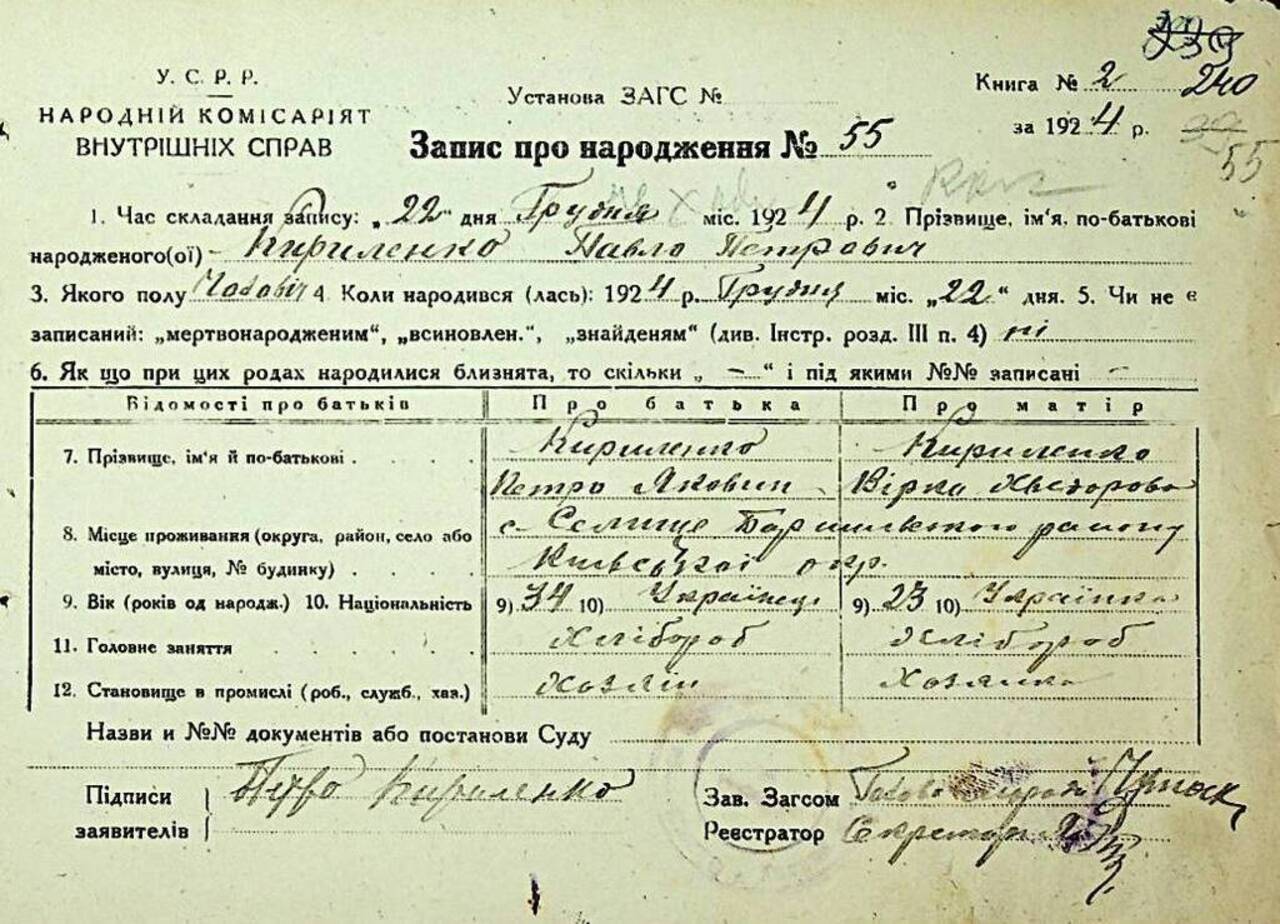 239
У. С. Р. Р.
НАРОДНІЙ КОМІСАРІЯТ
ВНУТРІШНІХ СПРАВ
Установа ЗАГС №
Книга № 2 240
за 1924 р.
55
Запис про народження № 55
1. Час складання запису: „22“ дня Грудня міс. 1924 р. 2. Прізвище, ім‘я, по-батькові
народженого(ої) - Кириленко Павло Петрович
3. Якого полу Чоловіч 4. Коли народився (лась): 1924 р. Грудня міс. „22“ дня. 5. Чи не є
записаний: „мертвонародженим“, „всиновлен.“, „знайденям“ (див. Інстр. розд. III п. 4) ні
6. Як що при цих родах народилися близнята, то скільки „ – “ і під якими №№ записані –
Відомості про батьків Про батька Про матір
7. Прізвище, ім‘я й по-батькові . . . . Кириленко Кириленко
Петро Якович Вірка Хведорова
8. Місце проживання (округа, район, село або с. Селище Баришевського району
місто, вулиця, № будинку) . . . . Київської окр.
9. Вік (років од народж.) 10. Національність 9) 34 10) Українець 9) 23 10) Українка
11. Головне заняття . . . . . Хлібороб Хлібороб
12. Становище в промислі (роб., служб., хаз.) Хозяін Хозяйка
Назви и №№ документів або постанови Суду
Підписи Петро Кириленко
заявителів
Зав. Загсом Голова
Реєстратор Секретар